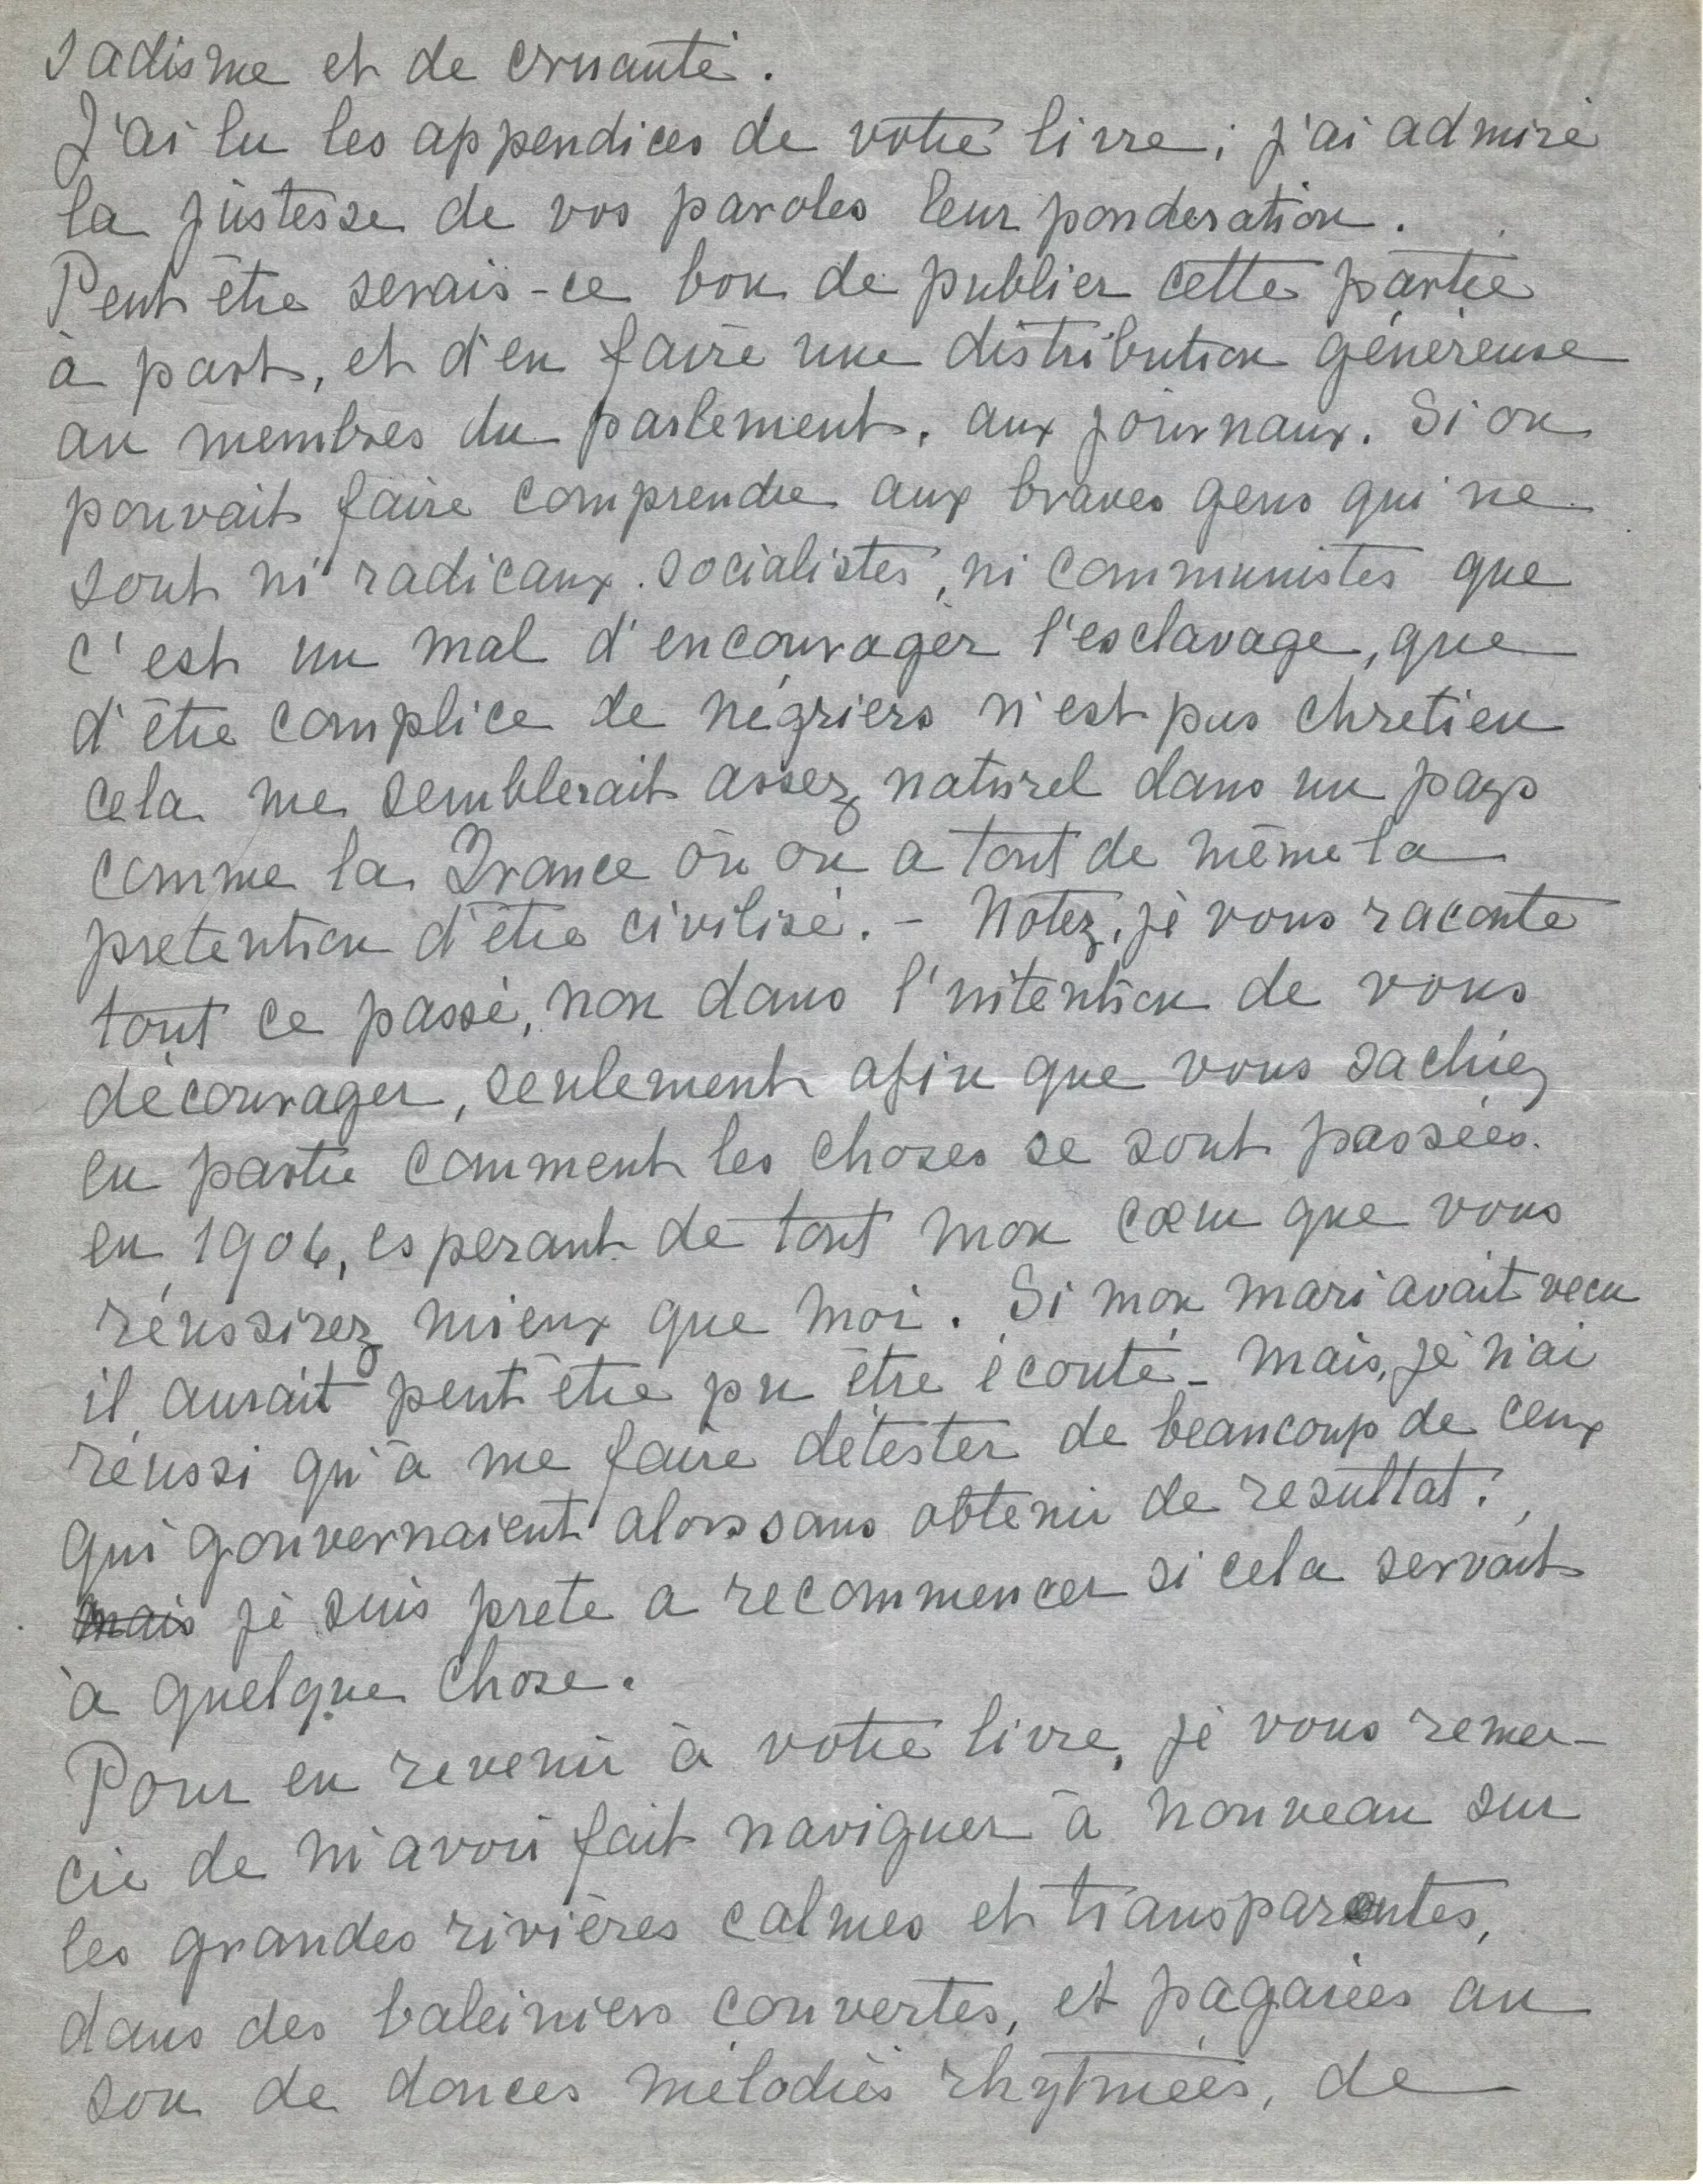 sadisme et de cruauté.
J'ai lu les appendices de votre livre; j'ai admiré
la justesse de vos paroles leur ponderation.
Peut être serais-ce bon de publier cette partie
à part, et d'en faire une distribution généreuse
au membres du parlement, aux journaux. Si on
pouvait faire comprendre aux braves gens qui ne
sont ni radicaux. socialistes, ni communistes que
c'est un mal d'encourager l'esclavage, que
d'être complice de négriers n'est pas chretien
cela me semblerait assez naturel dans un pays
comme la France où on a tout de même la
pretention d'être civilisé. - Notez, je vous raconte
tout ce passé, non dans l'intention de vous
décourager, seulement afin que vous sachiez
en partie comment les choses se sont passées.
en 1906, esperant de tout mon cœur que vous
réussirez mieux que moi. Si mon mari avait vecu
il aurait peut être pu être écouté - mais, je n'ai
réussi qu'à me faire détester de beaucoup de ceux
qui gouvernaient alors sans obtenir de resultat.
mais je suis prete a recommencer si cela servait
à quelque chose.
Pour en revenir à votre livre, je vous remer-
cie de m'avoir fait naviguer à nouveau sur
les grandes rivières calmes et transparentes,
dans des baleiniers couvertes, et pagaiées au
son de douces mélodies rhytmées, de